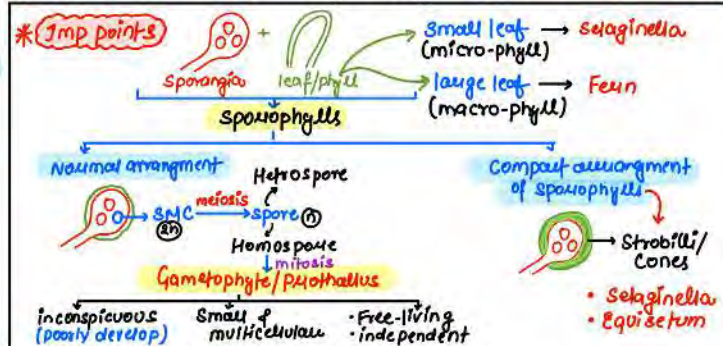 * Imp points
Sporangia
+
leaf/phyll
Small leaf → Selaginella
(micro-phyll)
large leaf → Fern
(macro-phyll)
Sporophylls
Normal arrangment
SMC
2n
meiosis
spore n
Hetrospore
Homospore
mitosis
Gametophyte/Prothallus
inconspicuous
(poorly develop)
Small &
multicellular
• Free-living
• independent
Compact arrangment
of sporophylls
Strobilli/
Cones
• Selaginella
• Equisetum